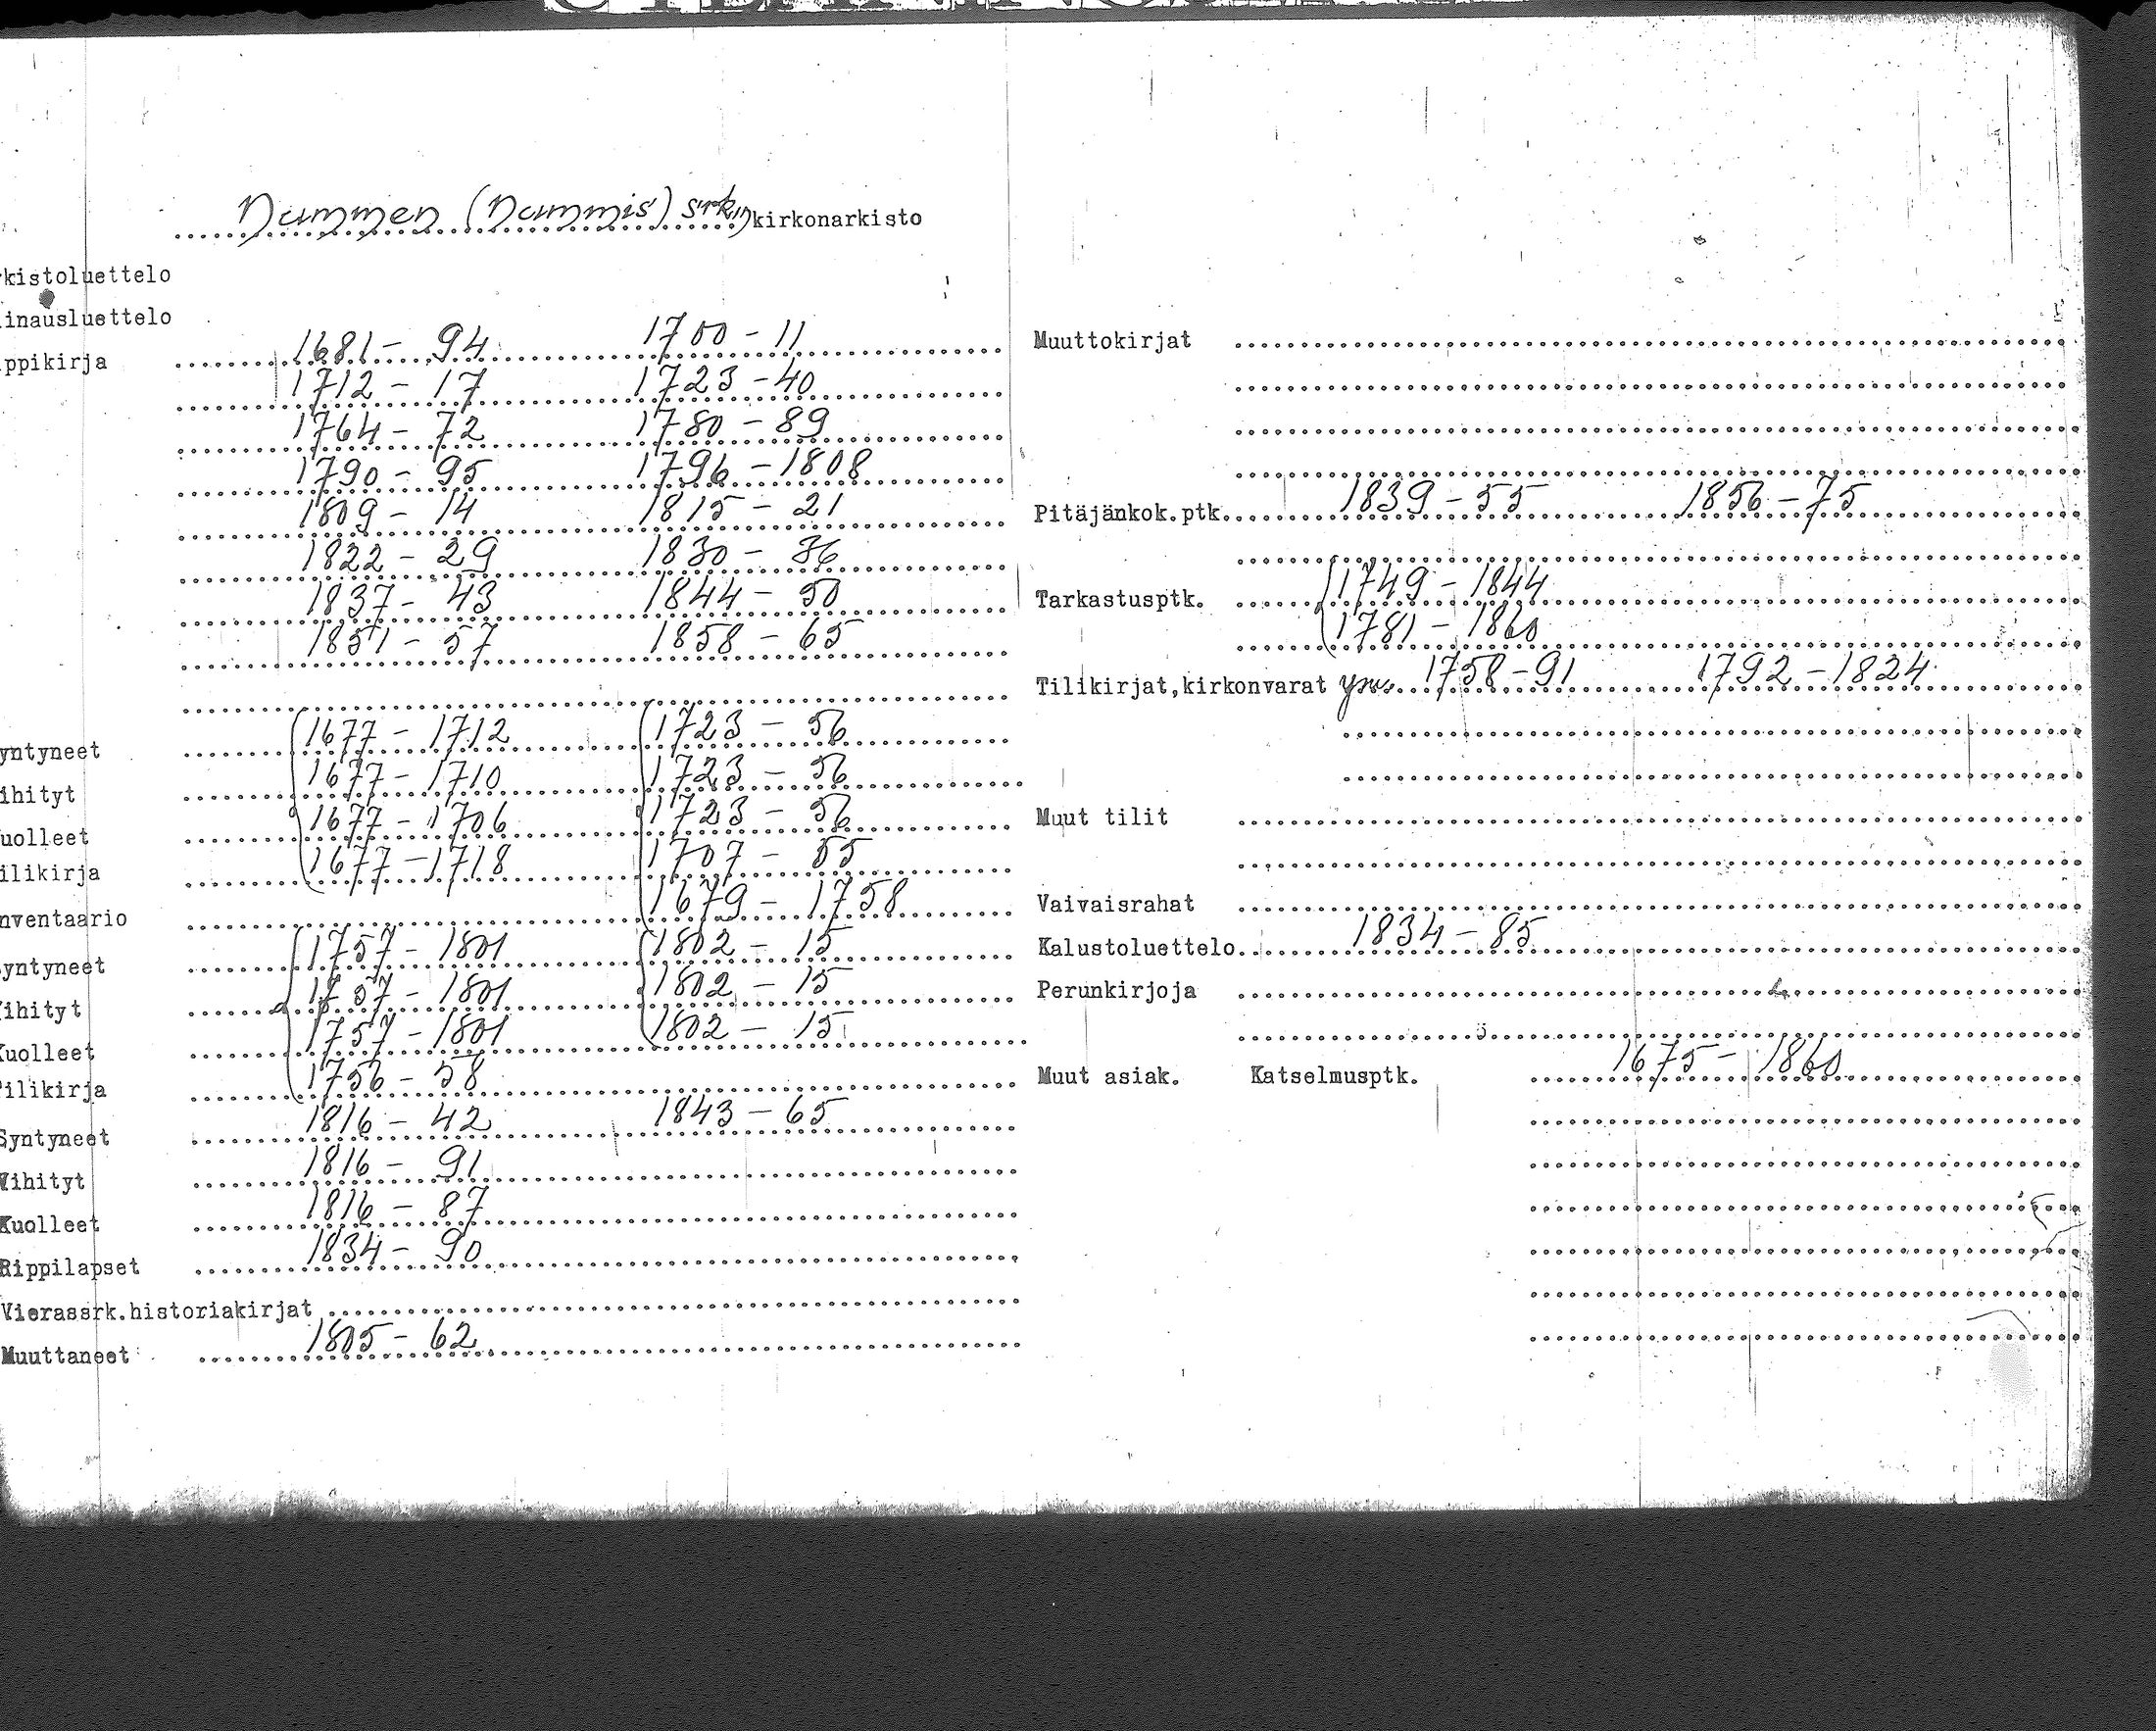 Nummen (Nummis) srk:n kirkonarkisto
kistoluettelo
inausluettelo
ppikirja 1681 - 94 1700 - 11
1712 - 17 1723 - 40
1764 - 72 1780 - 89
1790 - 95 1796 - 1808
1809 - 14 1815 - 21
1822 - 29 1830 - 36
1837 - 43 1844 - 50
1851 - 57 1858 - 65
yntyneet 1677 - 1712 1723 - 56
ihityt 1677 - 1710 1723 - 56
uolleet 1677 - 1706 1723 - 56
ilikirja 1677 - 1718 1707 - 55
nventaario 1679 - 1758
yntyneet 1757 - 1801 1802 - 15
ihityt 1757 - 1801 1802 - 15
Kuolleet 1757 - 1801 1802 - 15
ilikirja 1756 - 58
Syntyneet 1816 - 42 1843 - 65
Vihityt 1816 - 91
Kuolleet 1816 - 87
Rippilapset 1834 - 90
Vierassrk.historiakirjat
Muuttaneet 1805 - 62
Muuttokirjat
Pitäjänkok.ptk. 1839 - 55 1856 - 75
Tarkastusptk. 1749 - 1844
1781 - 1860
Tilikirjat,kirkonvarat ym. 1758 - 91 1792 - 1824
Muut tilit
Vaivaisrahat
Kalustoluettelo 1834 - 85
Perunkirjoja
Muut asiak. Katselmusptk. 1675 - 1860